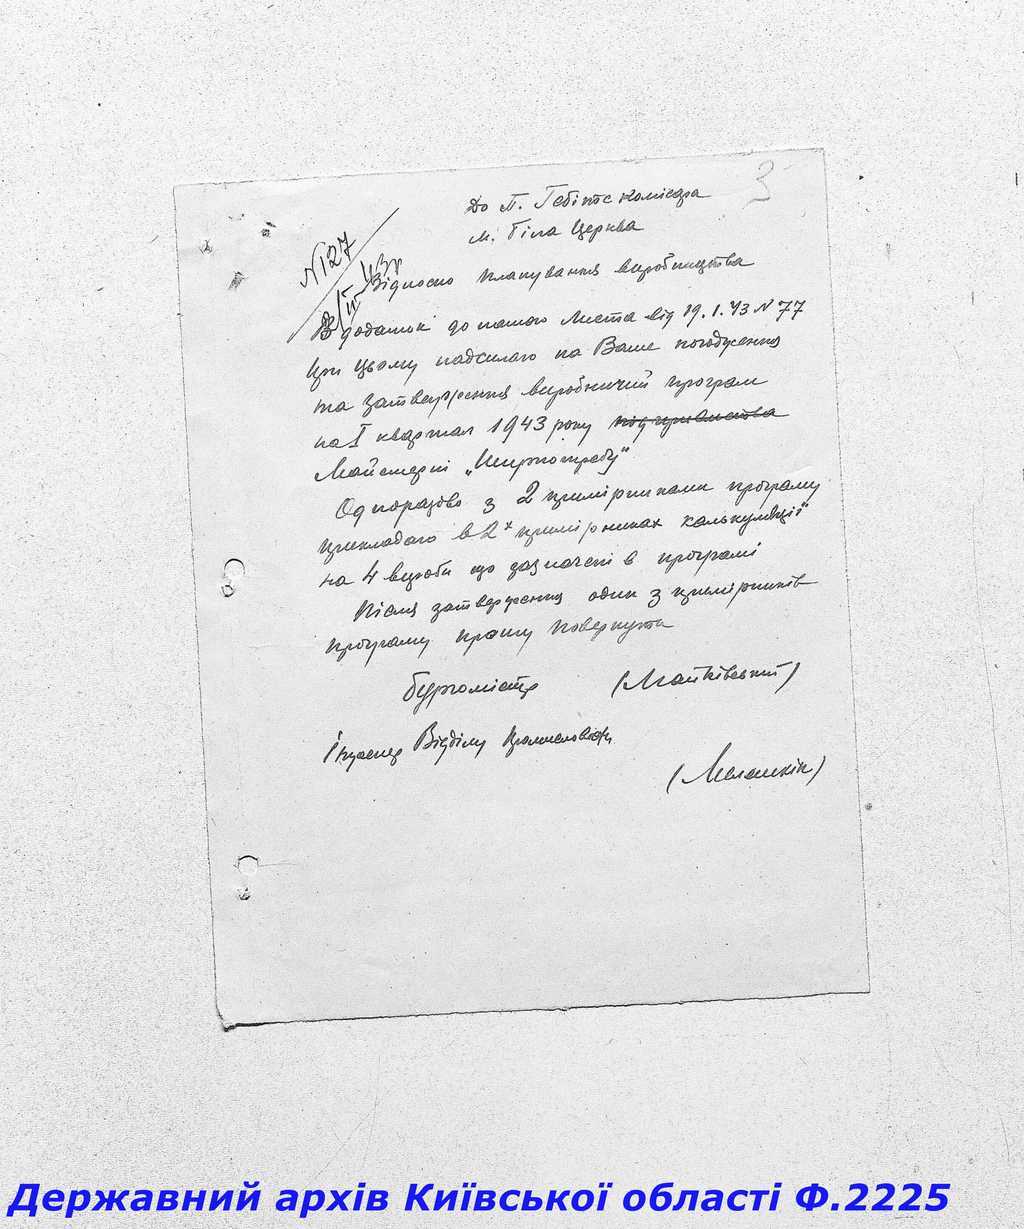 3
До П. Гебітс комісара
м. Біла Церква
N 127
43 р
Відносно планування виробництва
В додаток до нашого листа від 19.1.43 N 77
при цьому надсилаю на Ваше погодження
та затвердження виробничий програм
на I квартал 1943 року підприємства
Майстерні „Ширпотребу"
Одноразово з 2 примірниками програму
прикладаю в 2х примірниках калькуляції
на 4 вироби що зазначені в програмі
Після затвердження один з примірників
програму прошу повернути
Бургомістр (Маньківський)
Інспектор Відділу Промисловости
(Мелашкін)
Державний архів Київської області Ф.2225